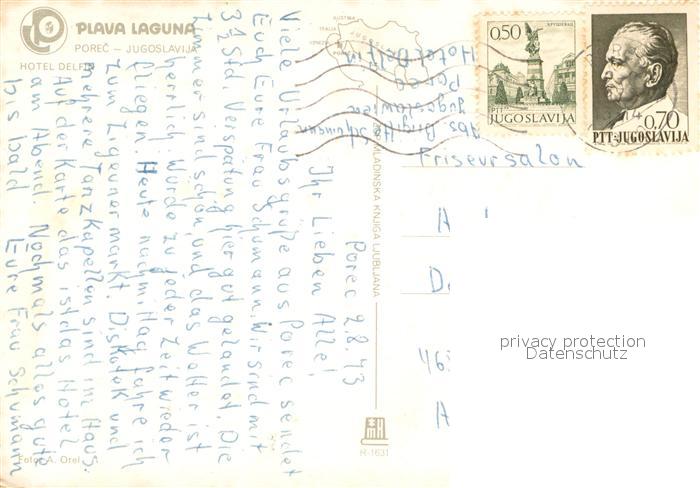 PLAVA LAGUNA
POREČ – JUGOSLAVIJA
HOTEL DELFIN
AUSTRIA
ITALIA
POREČ
0,50
PTT
JUGOSLAVIJA
0,70
PTT-JUGOSLAVIJA
Abs. Brigitte Schumann
Jugoslawien
Porec
Hotel Delfin
Friseursalon
A
D
46
A
privacy protection
Datenschutz
Porec 2.8.73
Ihr Lieben Alle!
Viele Urlaubsgrüße aus Porec sendet
Euch Eure Frau Schumann. Wir sind mit
3½ Std. Verspätung hier gut gelandet. Die
Zimmer sind schön und das Wetter ist
herrlich. Würde zu jeder Zeit wieder
fliegen. Heute nachmittag fahre ich
zum Zigeunermarkt. Diskotek und
mehrere Tanzkapellen sind im Haus.
Auf der Karte das ist das Hotel
am Abend. Nochmals alles gute
bis bald
Eure Frau Schumann
MLADINSKA KNJIGA LJUBLJANA
R-1631
Foto: A. Orel